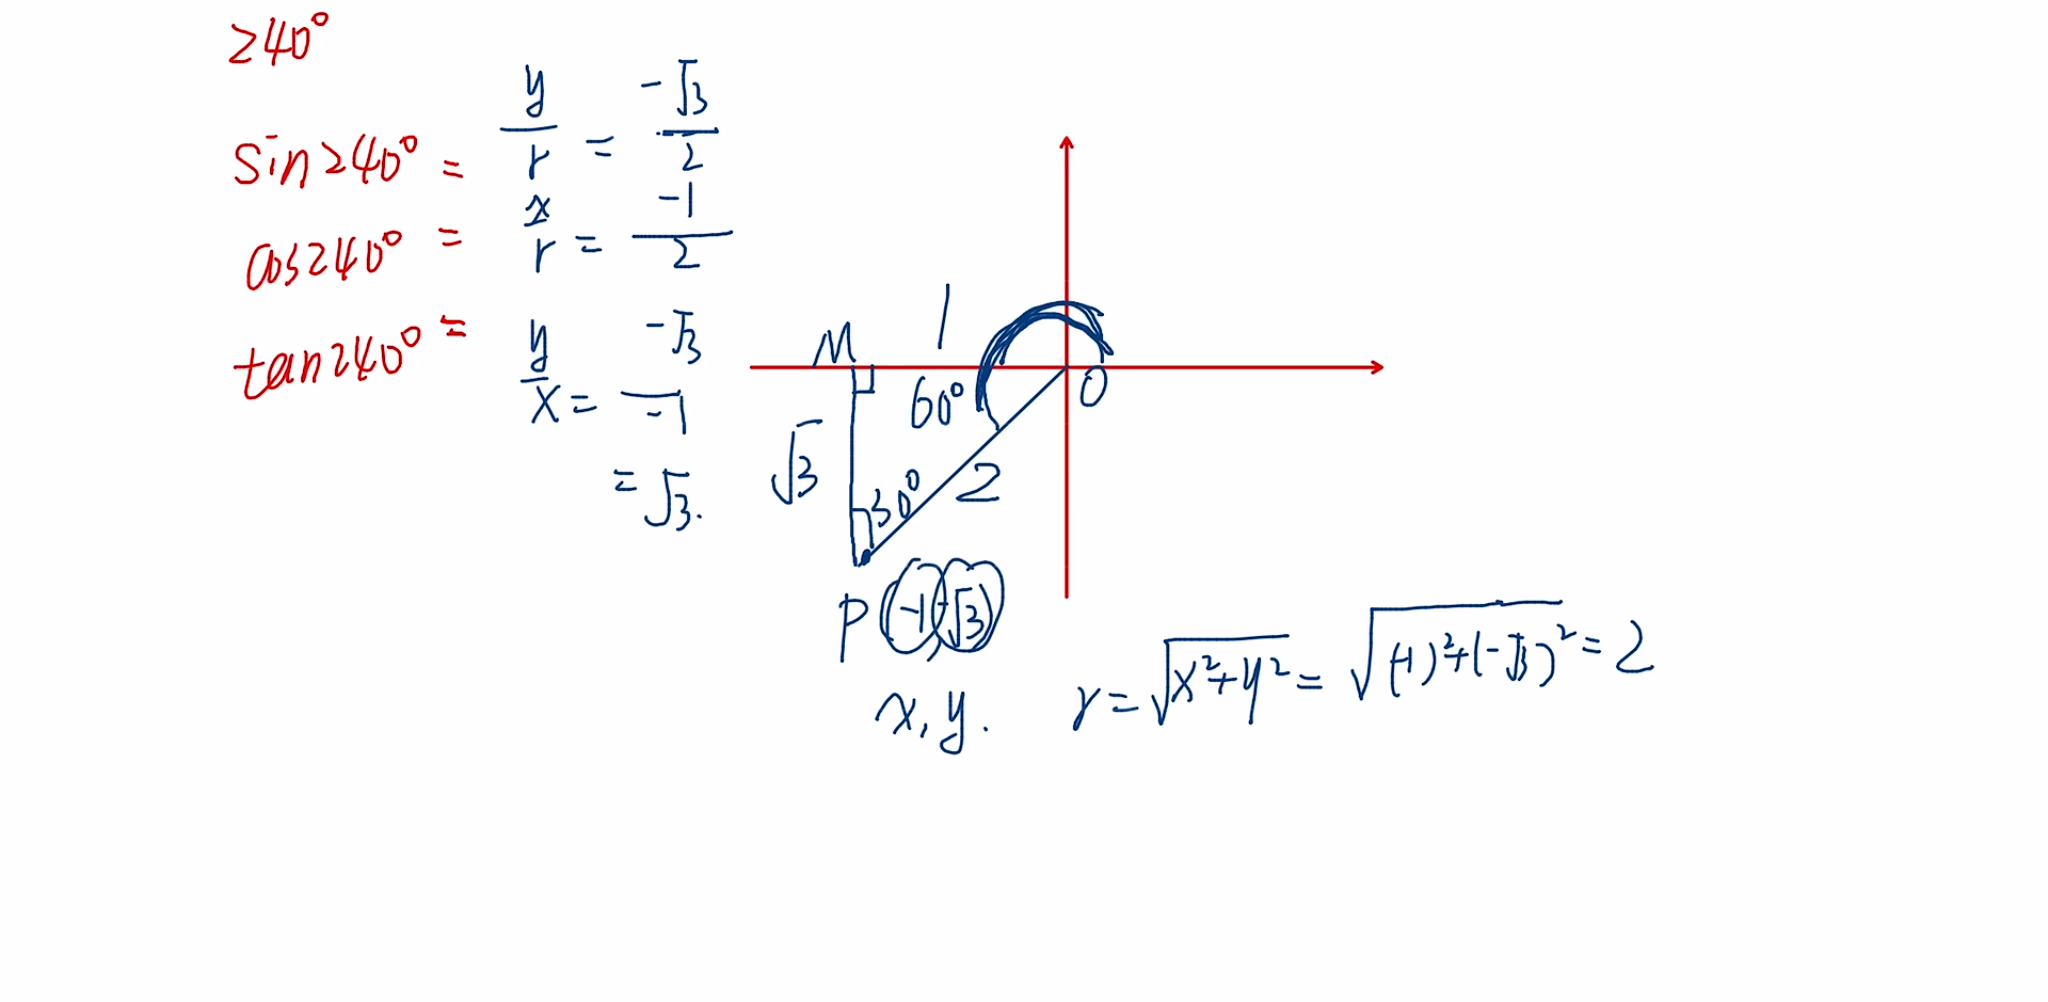 240°
sin240° = y/r = -√3/2
cos240° = x/r = -1/2
tan240° = y/x = -√3/-1
= √3.
M
1
60°
O
√3
30°
2
P(-1,-√3)
x,y.
r=√x²+y² = √(-1)²+(-√3)² = 2